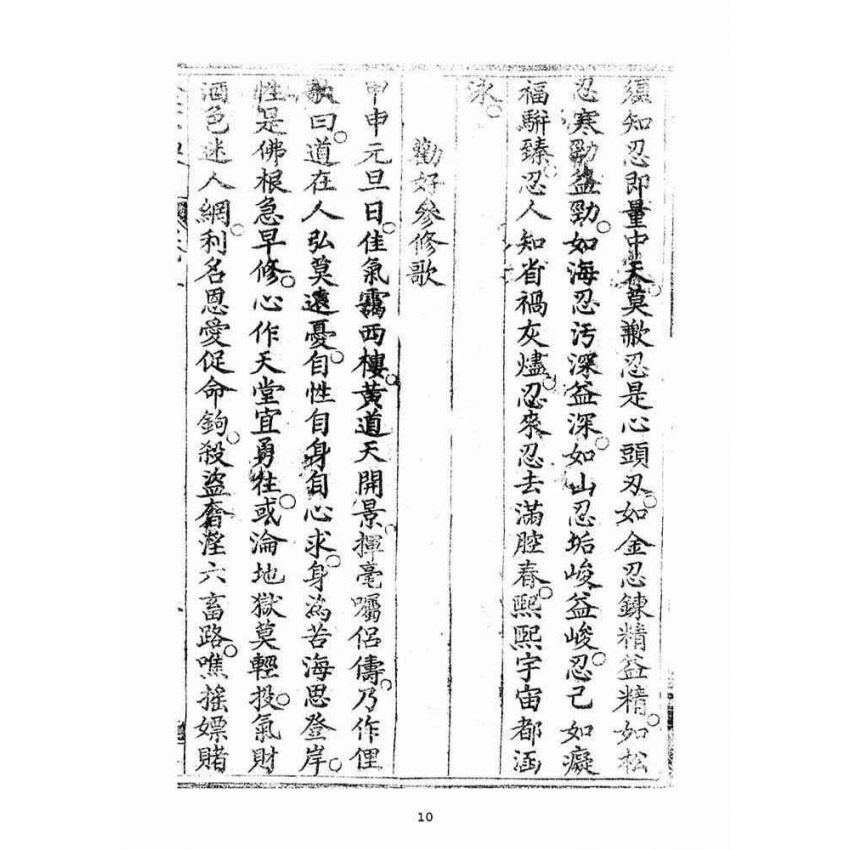 知忍即量中天莫忍是心頭刃。如金忍鍊精益精。如松
忍寒勁益勁。如海忍污深益深。如山忍垢峻益峻。忍己如癡
福駢臻。忍人知省禍灰燼。忍來忍去滿腔春。熙熙宇宙都涵
泳。
勸好參修歌
甲申元旦日。佳氣靄西樓。黃道天開景。揮毫囑侶儔。乃作俚
歌曰。道在人弘莫遠憂。自性自身自心求。身為苦海思登岸。
性是佛根急早修。心作天堂宜勇往。或淪地獄莫輕投。氣財
酒色迷人網。利名恩愛促命鉤。殺盜奢淫六畜路。噍搖嫖賭
10